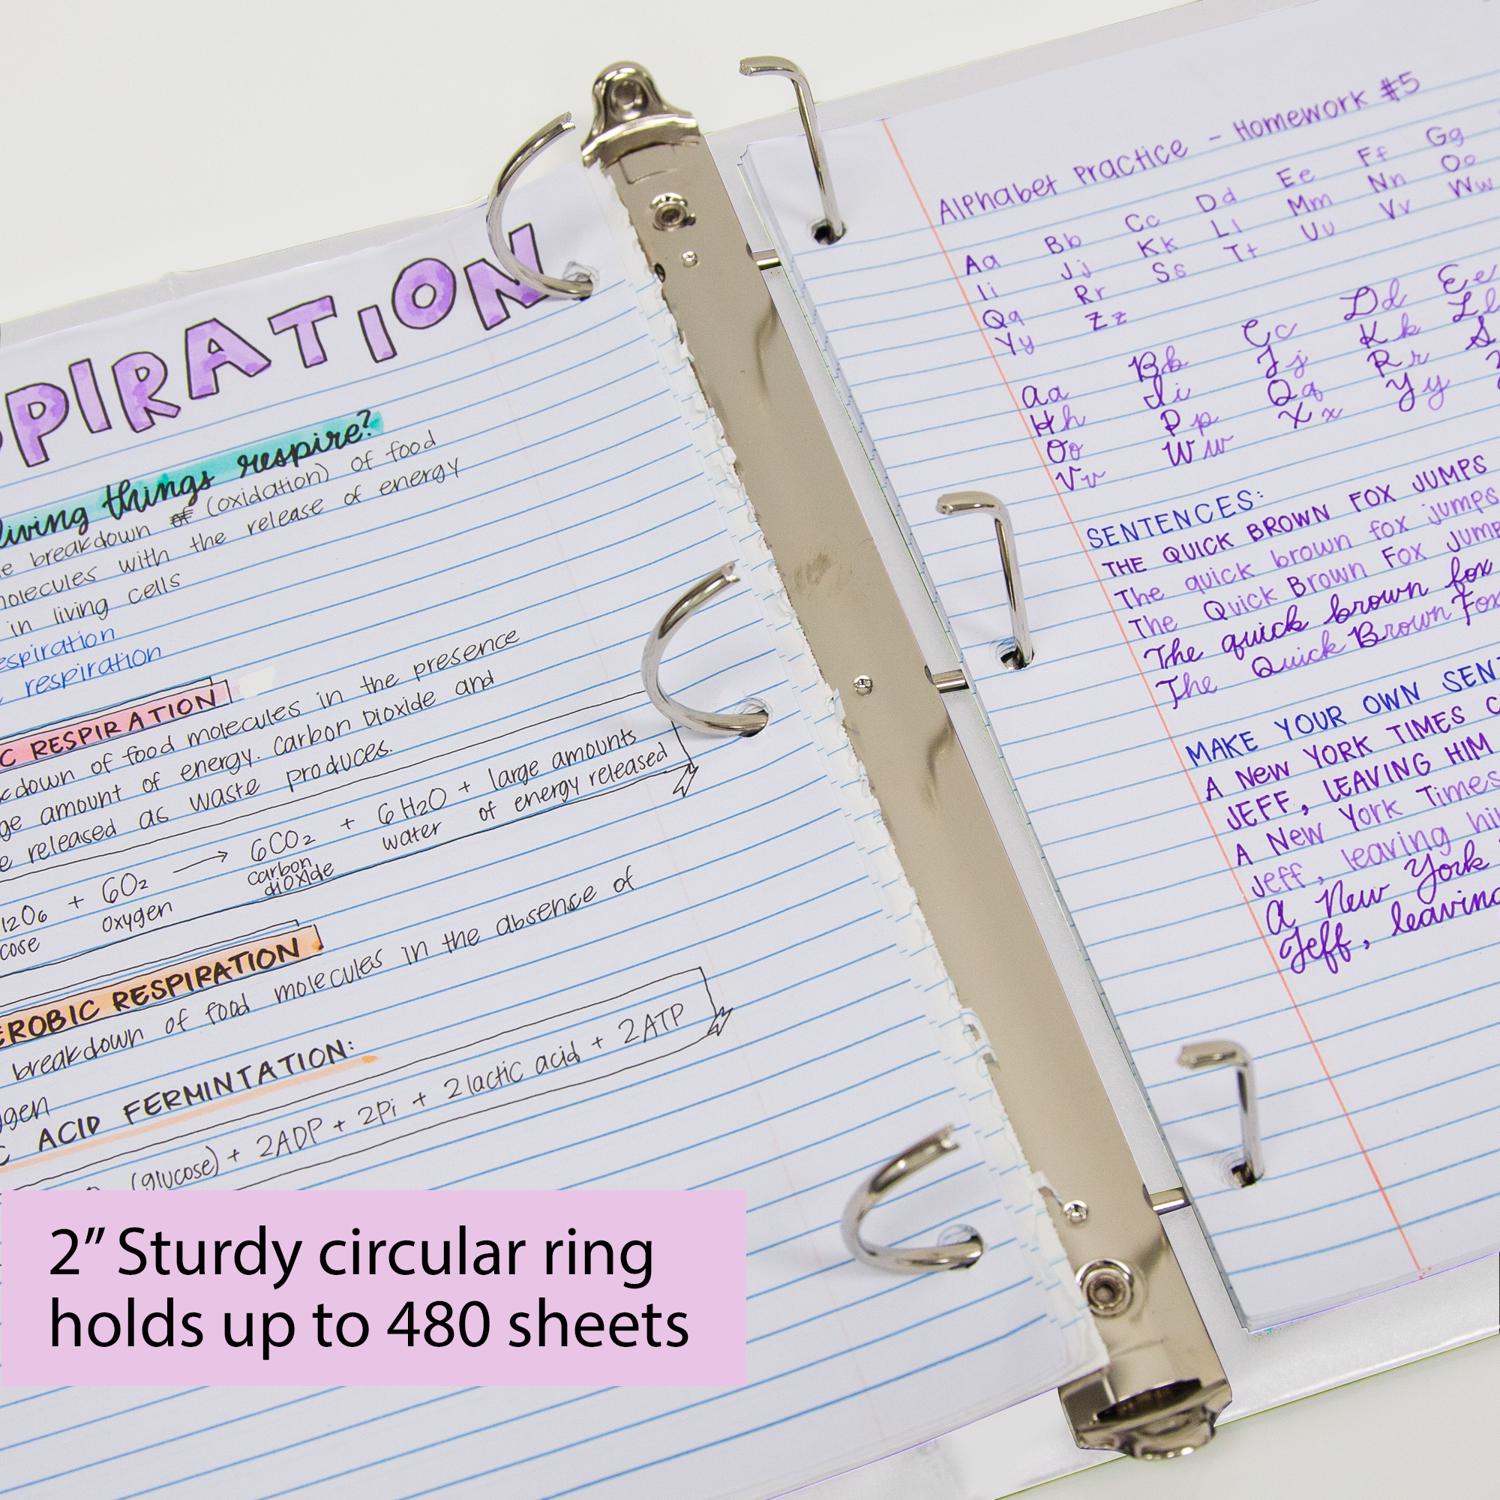 PIRATION
living things respire?
breakdown of (oxidation) of food
molecules with the release of energy
in living cells
espiration
respiration
C RESPIRATION
kdown of food molecules in the presence
ge amount of energy. Carbon Dioxide and
e released as waste produces.
12O6 + 6O2 → 6CO2 + 6H2O + large amounts
cose oxygen carbon dioxide water of energy released
EROBIC RESPIRATION
breakdown of food molecules in the absence of
ygen
C ACID FERMINTATION:
(glucose) + 2ADP + 2Pi + 2lactic acid + 2ATP
2” Sturdy circular ring
holds up to 480 sheets
Alphabet Practice - Homework #5
Aa Bb Cc Dd Ee Ff Gg
Ii Jj Kk Ll Mm Nn Oo
Qq Rr Ss Tt Uu Vv Ww
Yy Zz
Aa Bb Cc Dd Ee
Hh Ii Jj Kk Ll
Oo Pp Qq Rr S
Vv Ww Xx Yy
SENTENCES:
THE QUICK BROWN FOX JUMPS
The quick brown fox jumps
The Quick Brown Fox Jump
The quick brown fox
The Quick Brown Fox
MAKE YOUR OWN SEN
A NEW YORK TIMES C
JEFF, LEAVING HIM
A New York Times
Jeff, leaving hi
A New York
Jeff, leaving